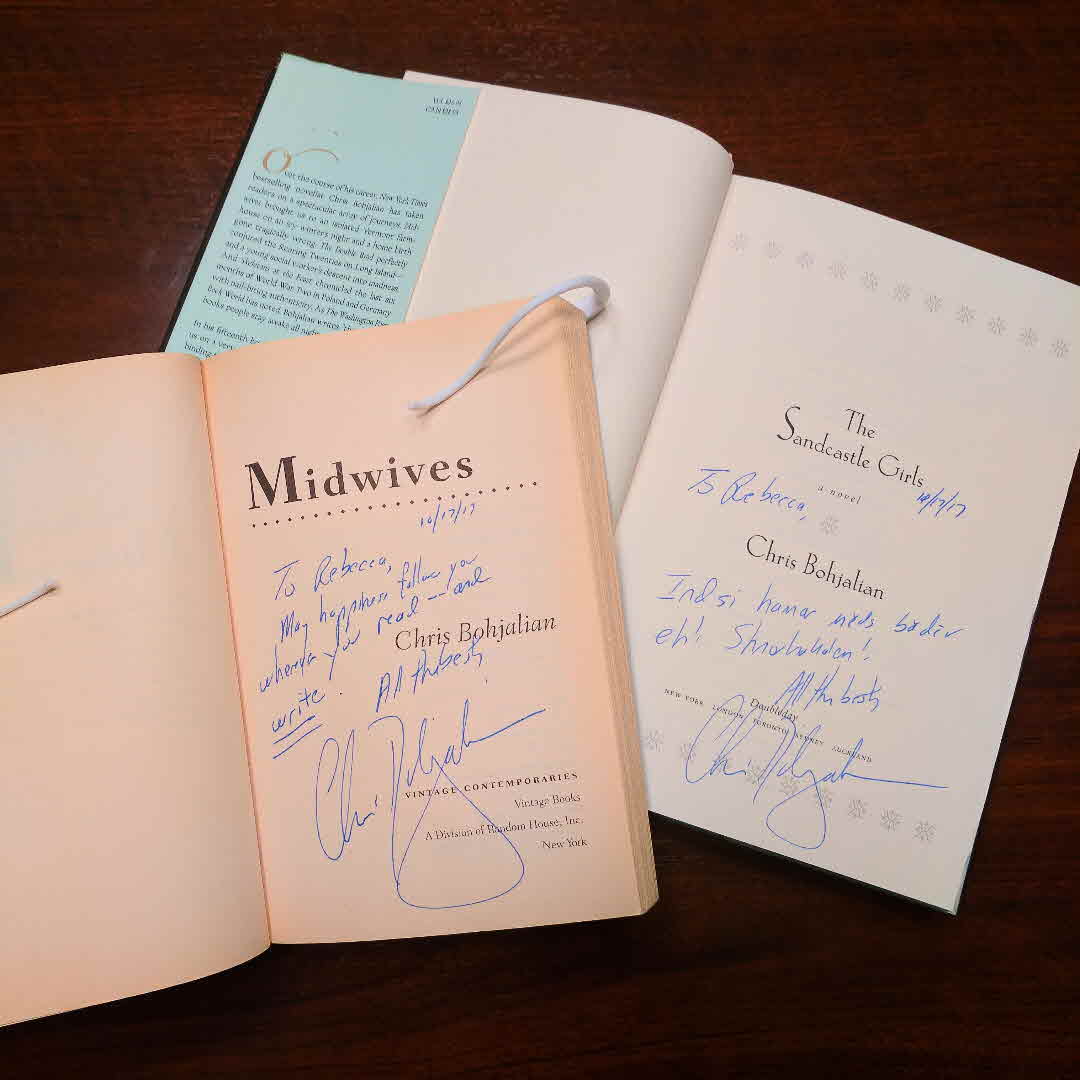 Over the course of his career, New York Times
bestselling novelist Chris Bohjalian has taken
readers on a spectacular array of journeys. Mid-
wives brought us to an isolated Vermont farm-
house on an icy winter's night and a home birth
gone tragically wrong. The Double Bind perfectly
conjured the Roaring Twenties on Long Island—
and a young social worker's descent into madness.
And Skeletons at the Feast chronicled the last six
months of World War Two in Poland and Germany
with nail-biting authenticity. As The Washington Post
Book World has noted, Bohjalian writes
books people stay awake all night
In his fifteenth
us on a very
binding
Midwives
10/17/17
To Rebecca,
May happiness follow you
wherever you read -- and
write.
Chris Bohjalian
All the best,
Chris Bohjalian
VINTAGE CONTEMPORARIES
Vintage Books
A Division of Random House, Inc.
New York
The
Sandcastle Girls
a novel
To Rebecca, 10/17/17
Chris Bohjalian
eh!
All the best,
Doubleday
NEW YORK LONDON TORONTO SYDNEY AUCKLAND
Chris Bohjalian